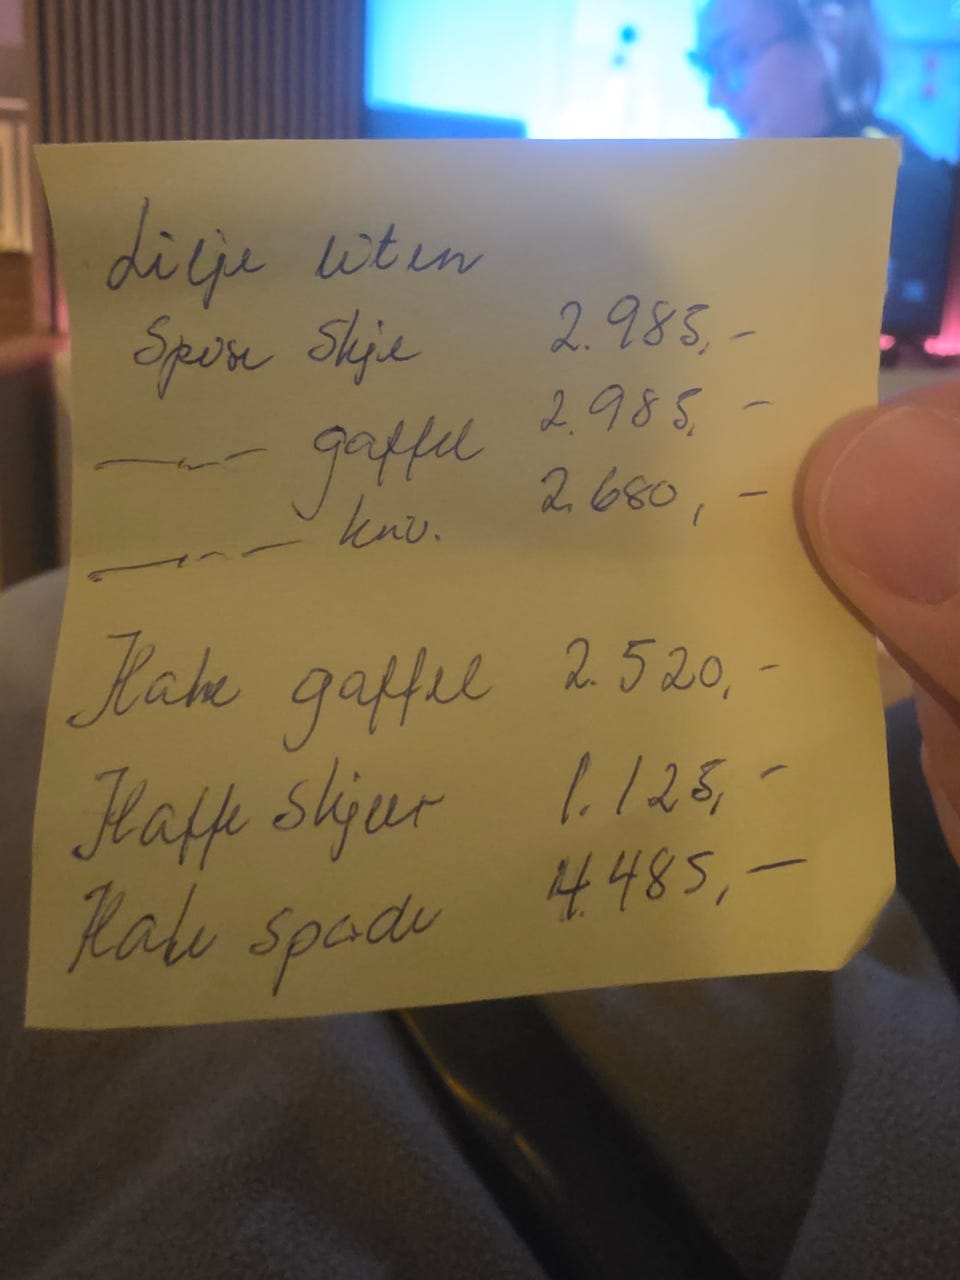 Lilje liten
Spise skje 2.985,-
—"— gaffel 2.985,-
—"— kniv. 2.680,-
Kake gaffel 2.520,-
Kaffe skjeer 1.125,-
Kake spade 4.485,-